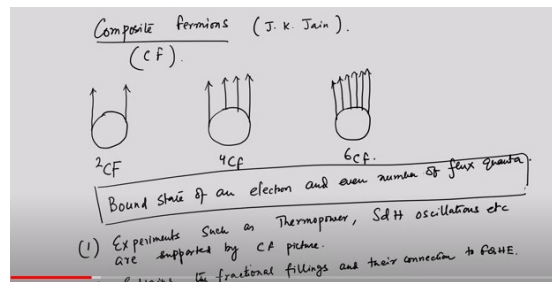 Composite fermions (J. K. Jain).
(CF).
²CF ⁴CF ⁶CF.
Bound state of an electron and even number of flux quanta.
(1) Experiments such as Thermopower, SdH oscillations etc
are supported by CF picture.
the fractional fillings and their connection to FQHE.